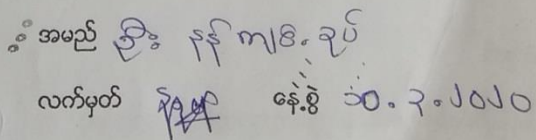 အမည် ဦး နန် ကျ၈. ခုပ်
လက်မှတ် နေ့စွဲ ၁၀.၃.၂၀၂၀